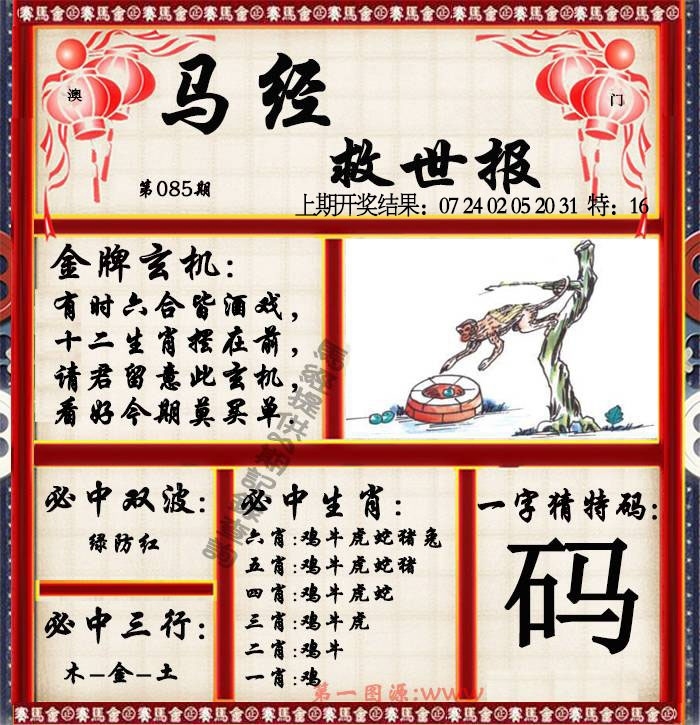 正金會馬賽
澳
门
马经
救世报
第085期
上期开奖结果：07 24 02 05 20 31 特：16
金牌玄机：
有时六合皆酒戏，
十二生肖摆在前，
请君留意此玄机，
看好今期莫买单.
必中双波：
绿防红
必中三行：
木–金–土
必中生肖：
六肖:鸡牛虎蛇猪兔
五肖:鸡牛虎蛇猪
四肖:鸡牛虎蛇
三肖:鸡牛虎
二肖:鸡牛
一肖:鸡
一字猜特码：
码
第一图源:www